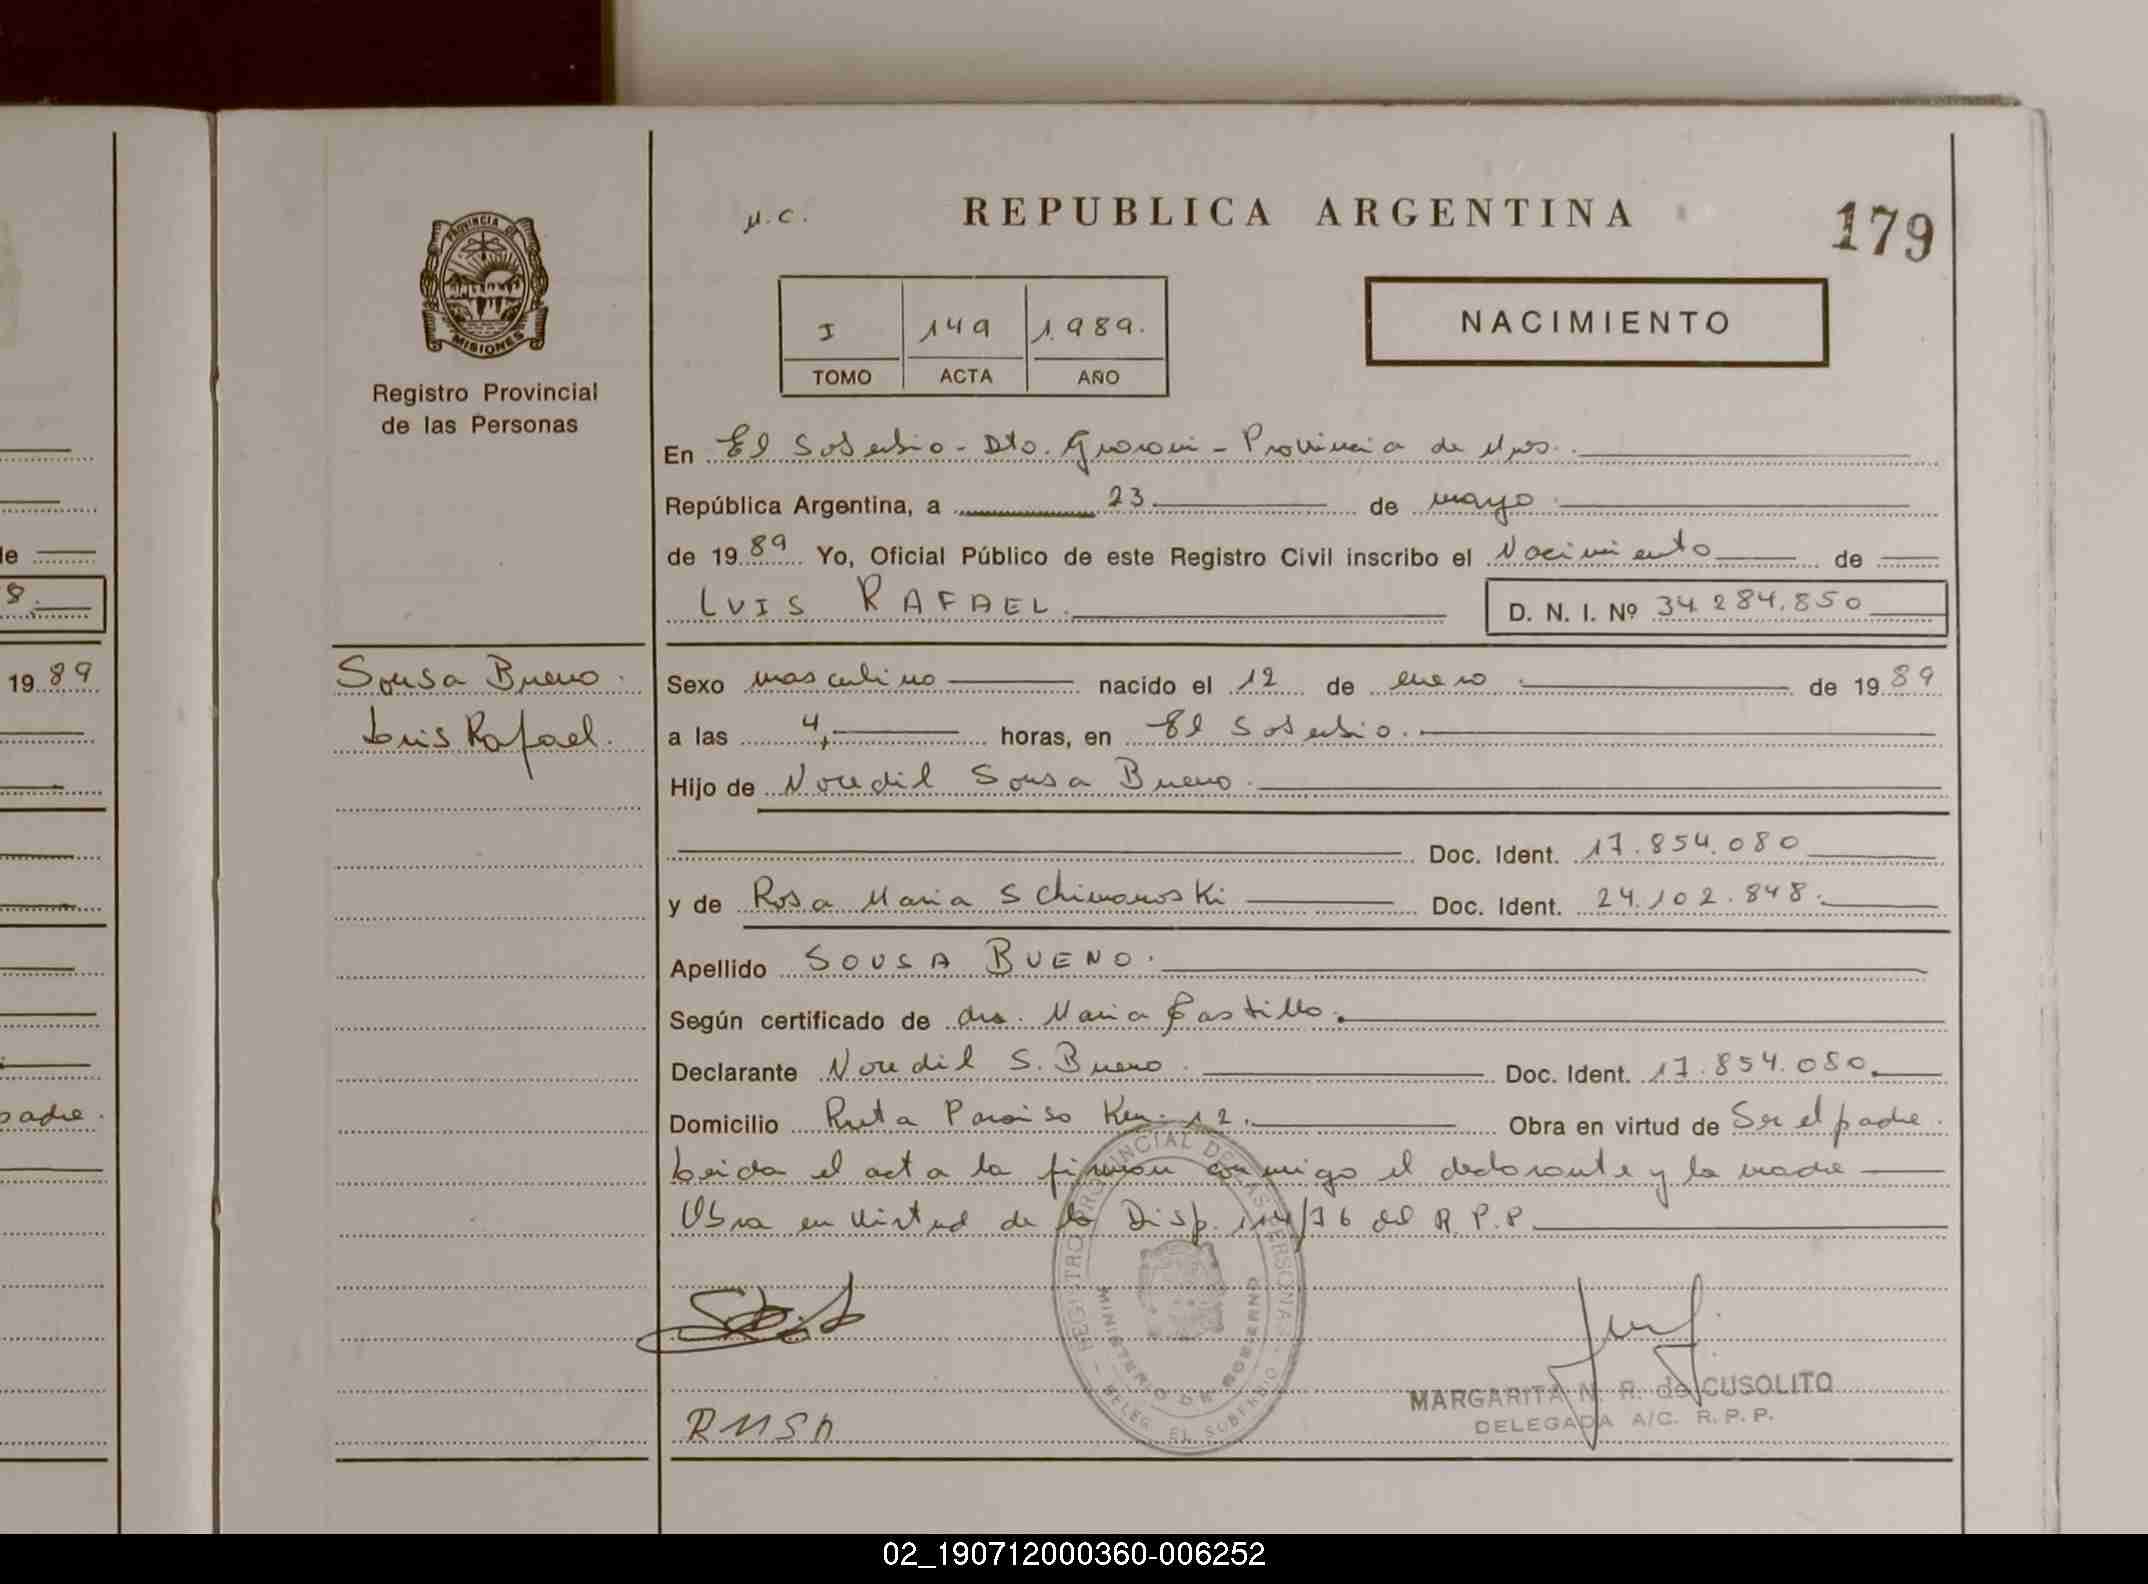 de
8.
19 89
padre.
PROVINCIA DE
MISIONES
Registro Provincial
de las Personas
Sousa Bueno.
Luis Rafael.
REPUBLICA ARGENTINA
179
I 149 1.989.
TOMO ACTA AÑO
NACIMIENTO
En El Soberbio - Dto. Guarani - Provincia de Mnes.
República Argentina, a 23 de mayo
de 1989 Yo, Oficial Público de este Registro Civil inscribo el Nacimiento de
LUIS RAFAEL. D. N. I. Nº 34.284.850
Sexo masculino nacido el 12 de enero de 1989
a las 4, horas, en El Soberbio.
Hijo de Noredil Sousa Bueno.
Doc. Ident. 17.854.080
y de Rosa Maria Schimanoski Doc. Ident. 24.102.848.
Apellido SOUSA BUENO.
Según certificado de dra. Maria Castillo.
Declarante Noredil S. Bueno. Doc. Ident. 17.854.080.
Domicilio Ruta Paraiso Km. 12. Obra en virtud de Ser el padre.
Leida el acta la firman conmigo el declarante y la madre
Obra en virtud de la Disp. 114/76 del R.P.P.
REGISTRO PROVINCIAL DE LAS PERSONAS
MINISTERIO DE GOBIERNO
DELEG. EL SOBERBIO
RMSA
MARGARITA N. R. de CUSOLITO
DELEGADA A/C. R. P. P.
02_190712000360-006252